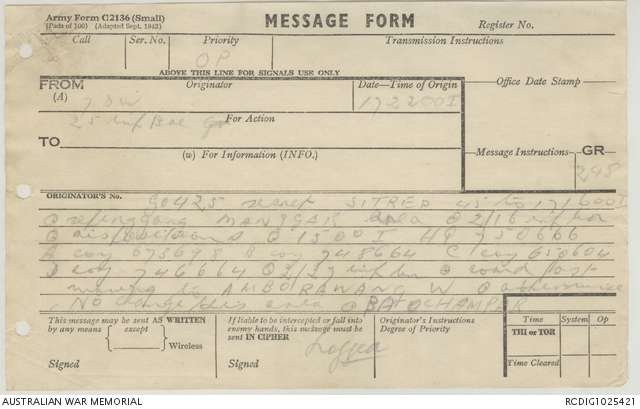 Army Form C2136 (Small)
(Pads of 100) (Adapted Sept. 1943)
MESSAGE FORM
Register No.
Call Ser. No. Priority Transmission Instructions
OP
ABOVE THIS LINE FOR SIGNALS USE ONLY
FROM Originator Date—Time of Origin Office Date Stamp
(A) 7 DIV 172200I
For Action
25 inf Bde
TO
(W) For Information (INFO.)
Message Instructions GR
298
ORIGINATOR'S No.
GO425 secret SITREP 45 to 171600I
sepinggang MANGGAR area 2/16 inf bn
dispositions 1500 I HQ 750666
A coy 675698 B coy 748664 C coy 650604
D coy 746664 2/27 inf bn
moving to AMBORAWANG W
No change this area
This message may be sent AS WRITTEN
by any means except
Wireless
Signed
If liable to be intercepted or fall into
enemy hands, this message must be
sent IN CIPHER
Signed
Originator's Instructions
Degree of Priority
Time System Op
THI or TOR
Time Cleared
AUSTRALIAN WAR MEMORIAL
RCDIG1025421